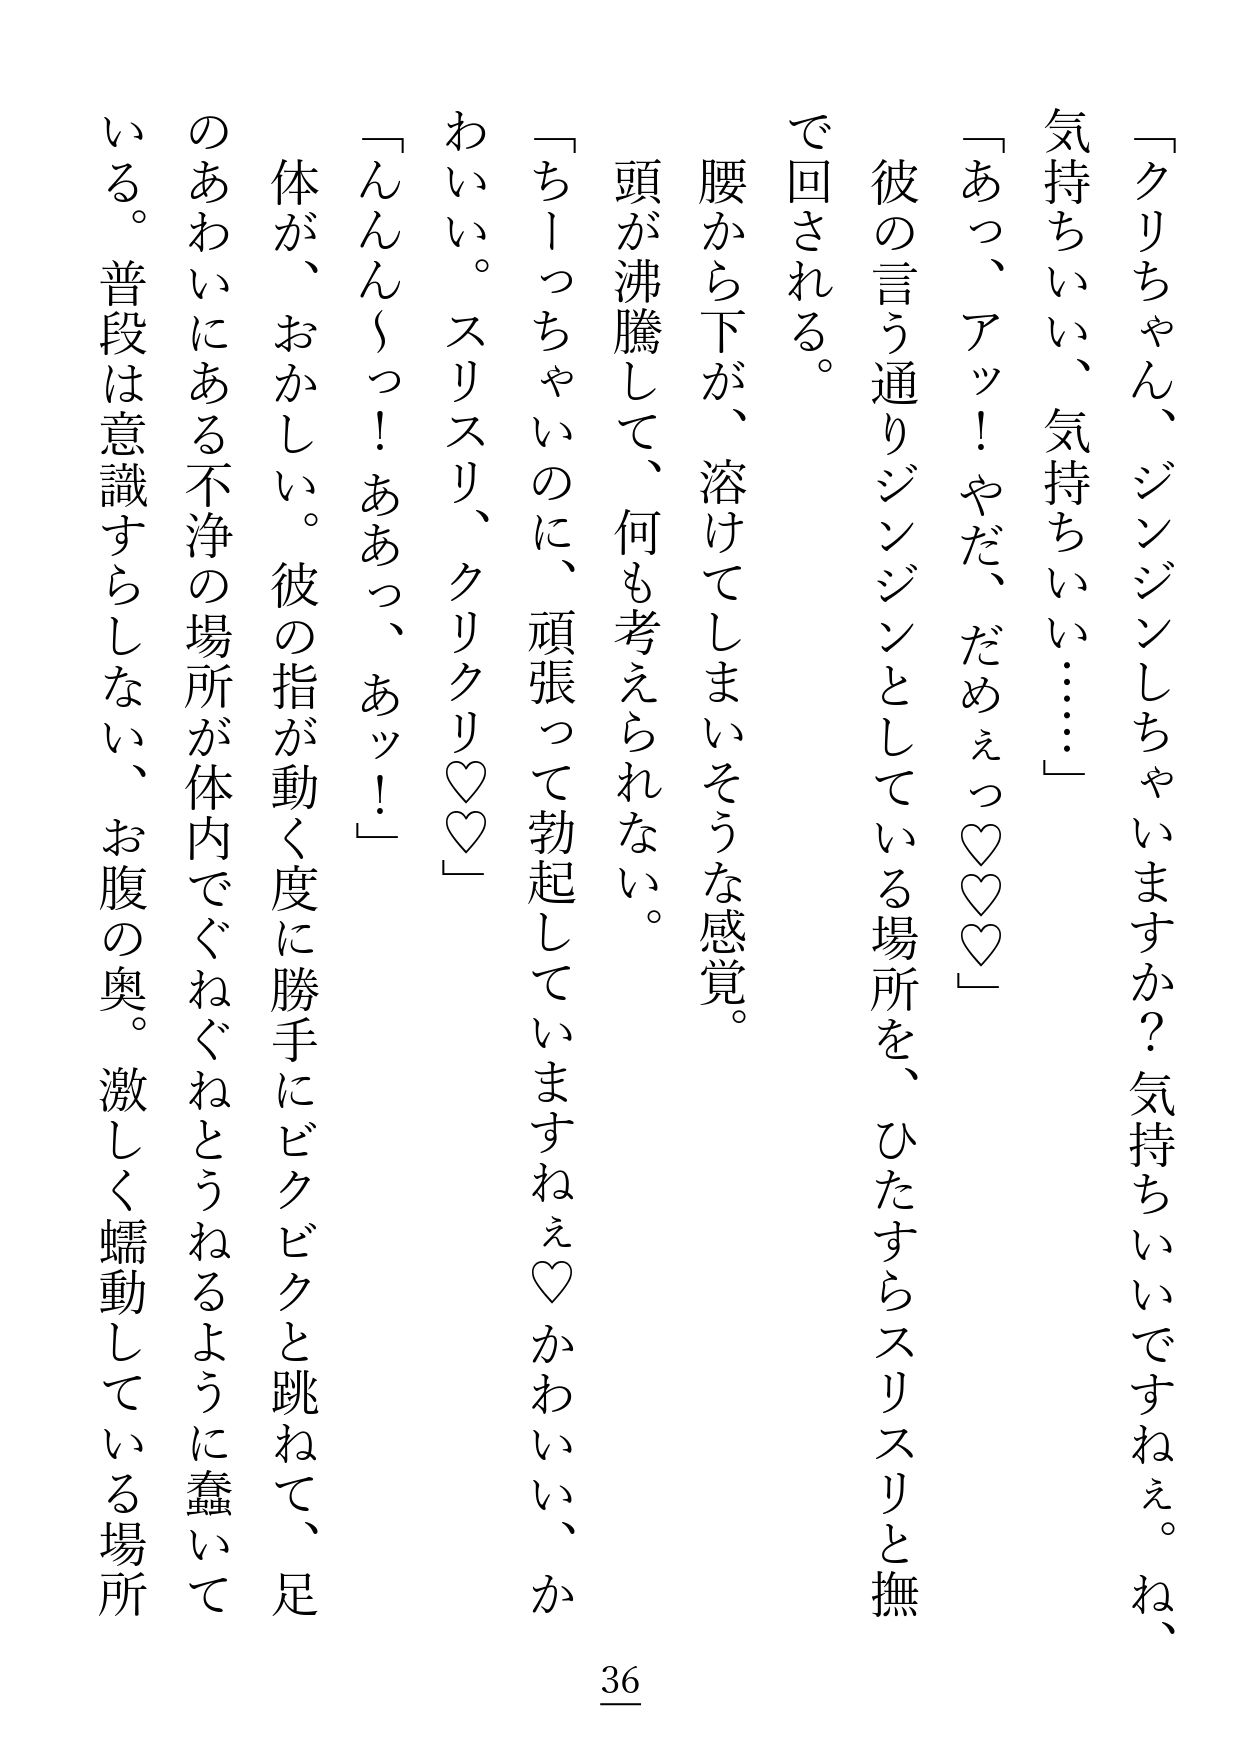 「クリちゃん、ジンジンしちゃいますか？気持ちいいですねぇ。ね、
気持ちいい、気持ちいい……」
「あっ、アッ！やだ、だめぇっ♡♡♡」
彼の言う通りジンジンとしている場所を、ひたすらスリスリと撫
で回される。
腰から下が、溶けてしまいそうな感覚。
頭が沸騰して、何も考えられない。
「ちーっちゃいのに、頑張って勃起していますねぇ♡かわいい、か
わいい。スリスリ、クリクリ♡♡」
「んんん～っ！ああっ、あッ！」
体が、おかしい。彼の指が動く度に勝手にビクビクと跳ねて、足
のあわいにある不浄の場所が体内でぐねぐねとうねるように蠢いて
いる。普段は意識すらしない、お腹の奥。激しく蠕動している場所
36